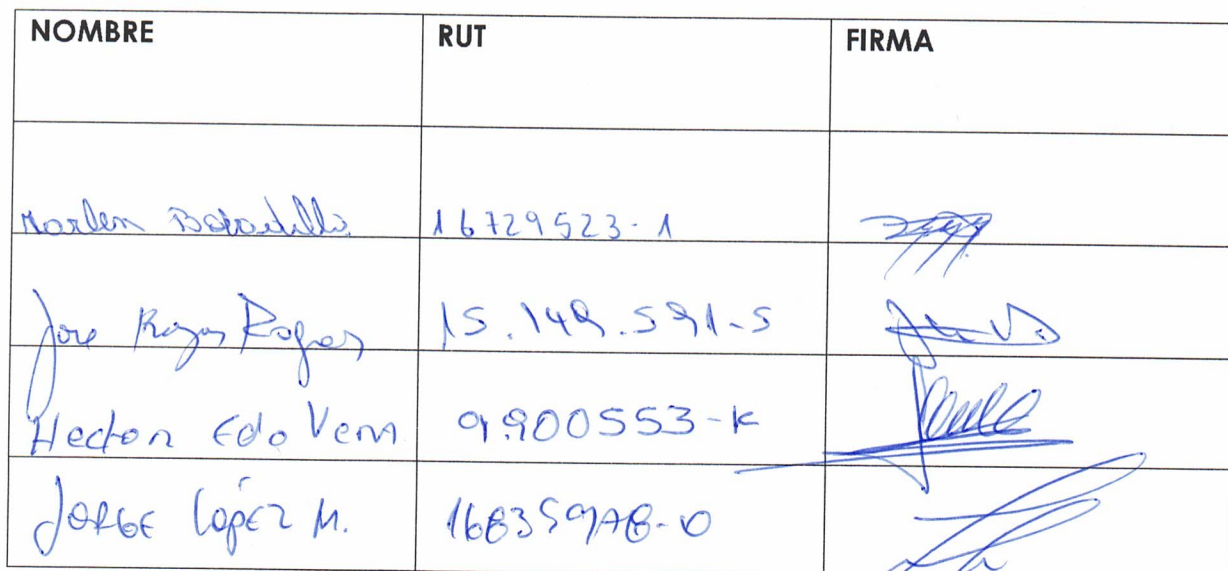 NOMBRE RUT FIRMA
Marlen Bobadilla 16729523-1
Jose Rojas Rojas 15.149.591-5
Hector Edo Vera 9.900553-K
JORGE López M. 16835978-0